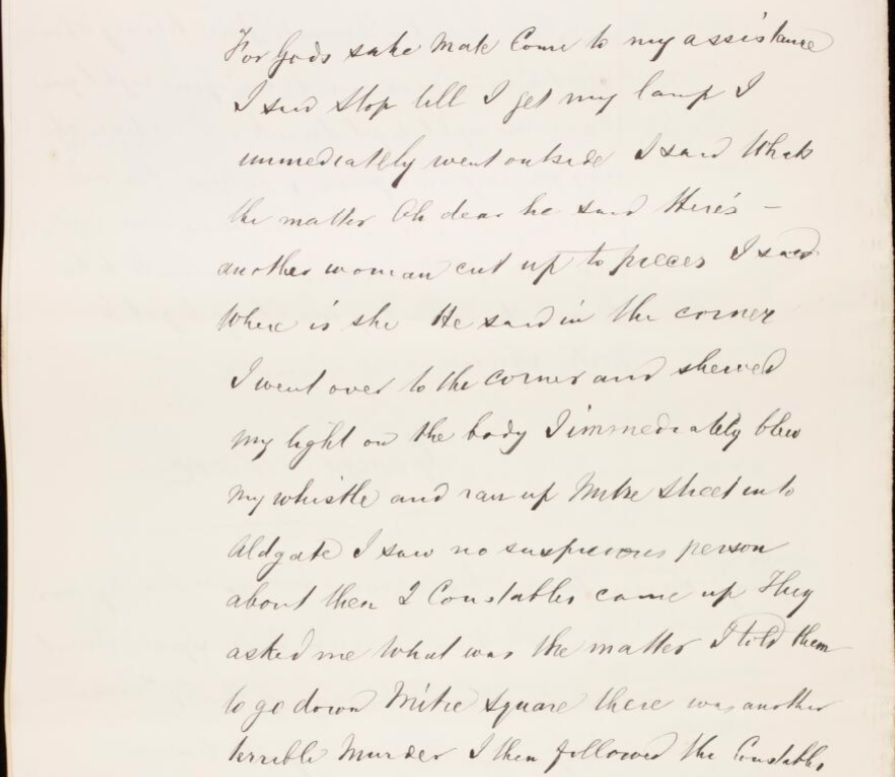 For Gods sake Mate Come to my assistance
I said Stop till I get my lamp I
immediately went outside I said Whats
the matter Oh dear he said Here's —
another woman cut up to pieces I said
Where is she He said in the corner
I went over to the corner and shewed
my light on the body I immediately blew
my whistle and ran up Mitre Street into
Aldgate I saw no suspicious person
about then 2 Constables came up They
asked me What was the matter I told them
to go down Mitre Square there was another
terrible Murder I then followed the Constables